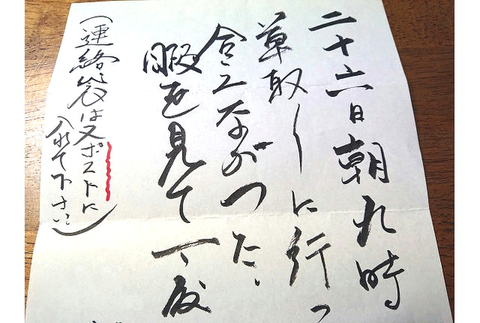 二十六日朝九時
草取しに行っ
合えなかった、
暇を見て一度
(連絡袋は又ポストに
入れて下さい)